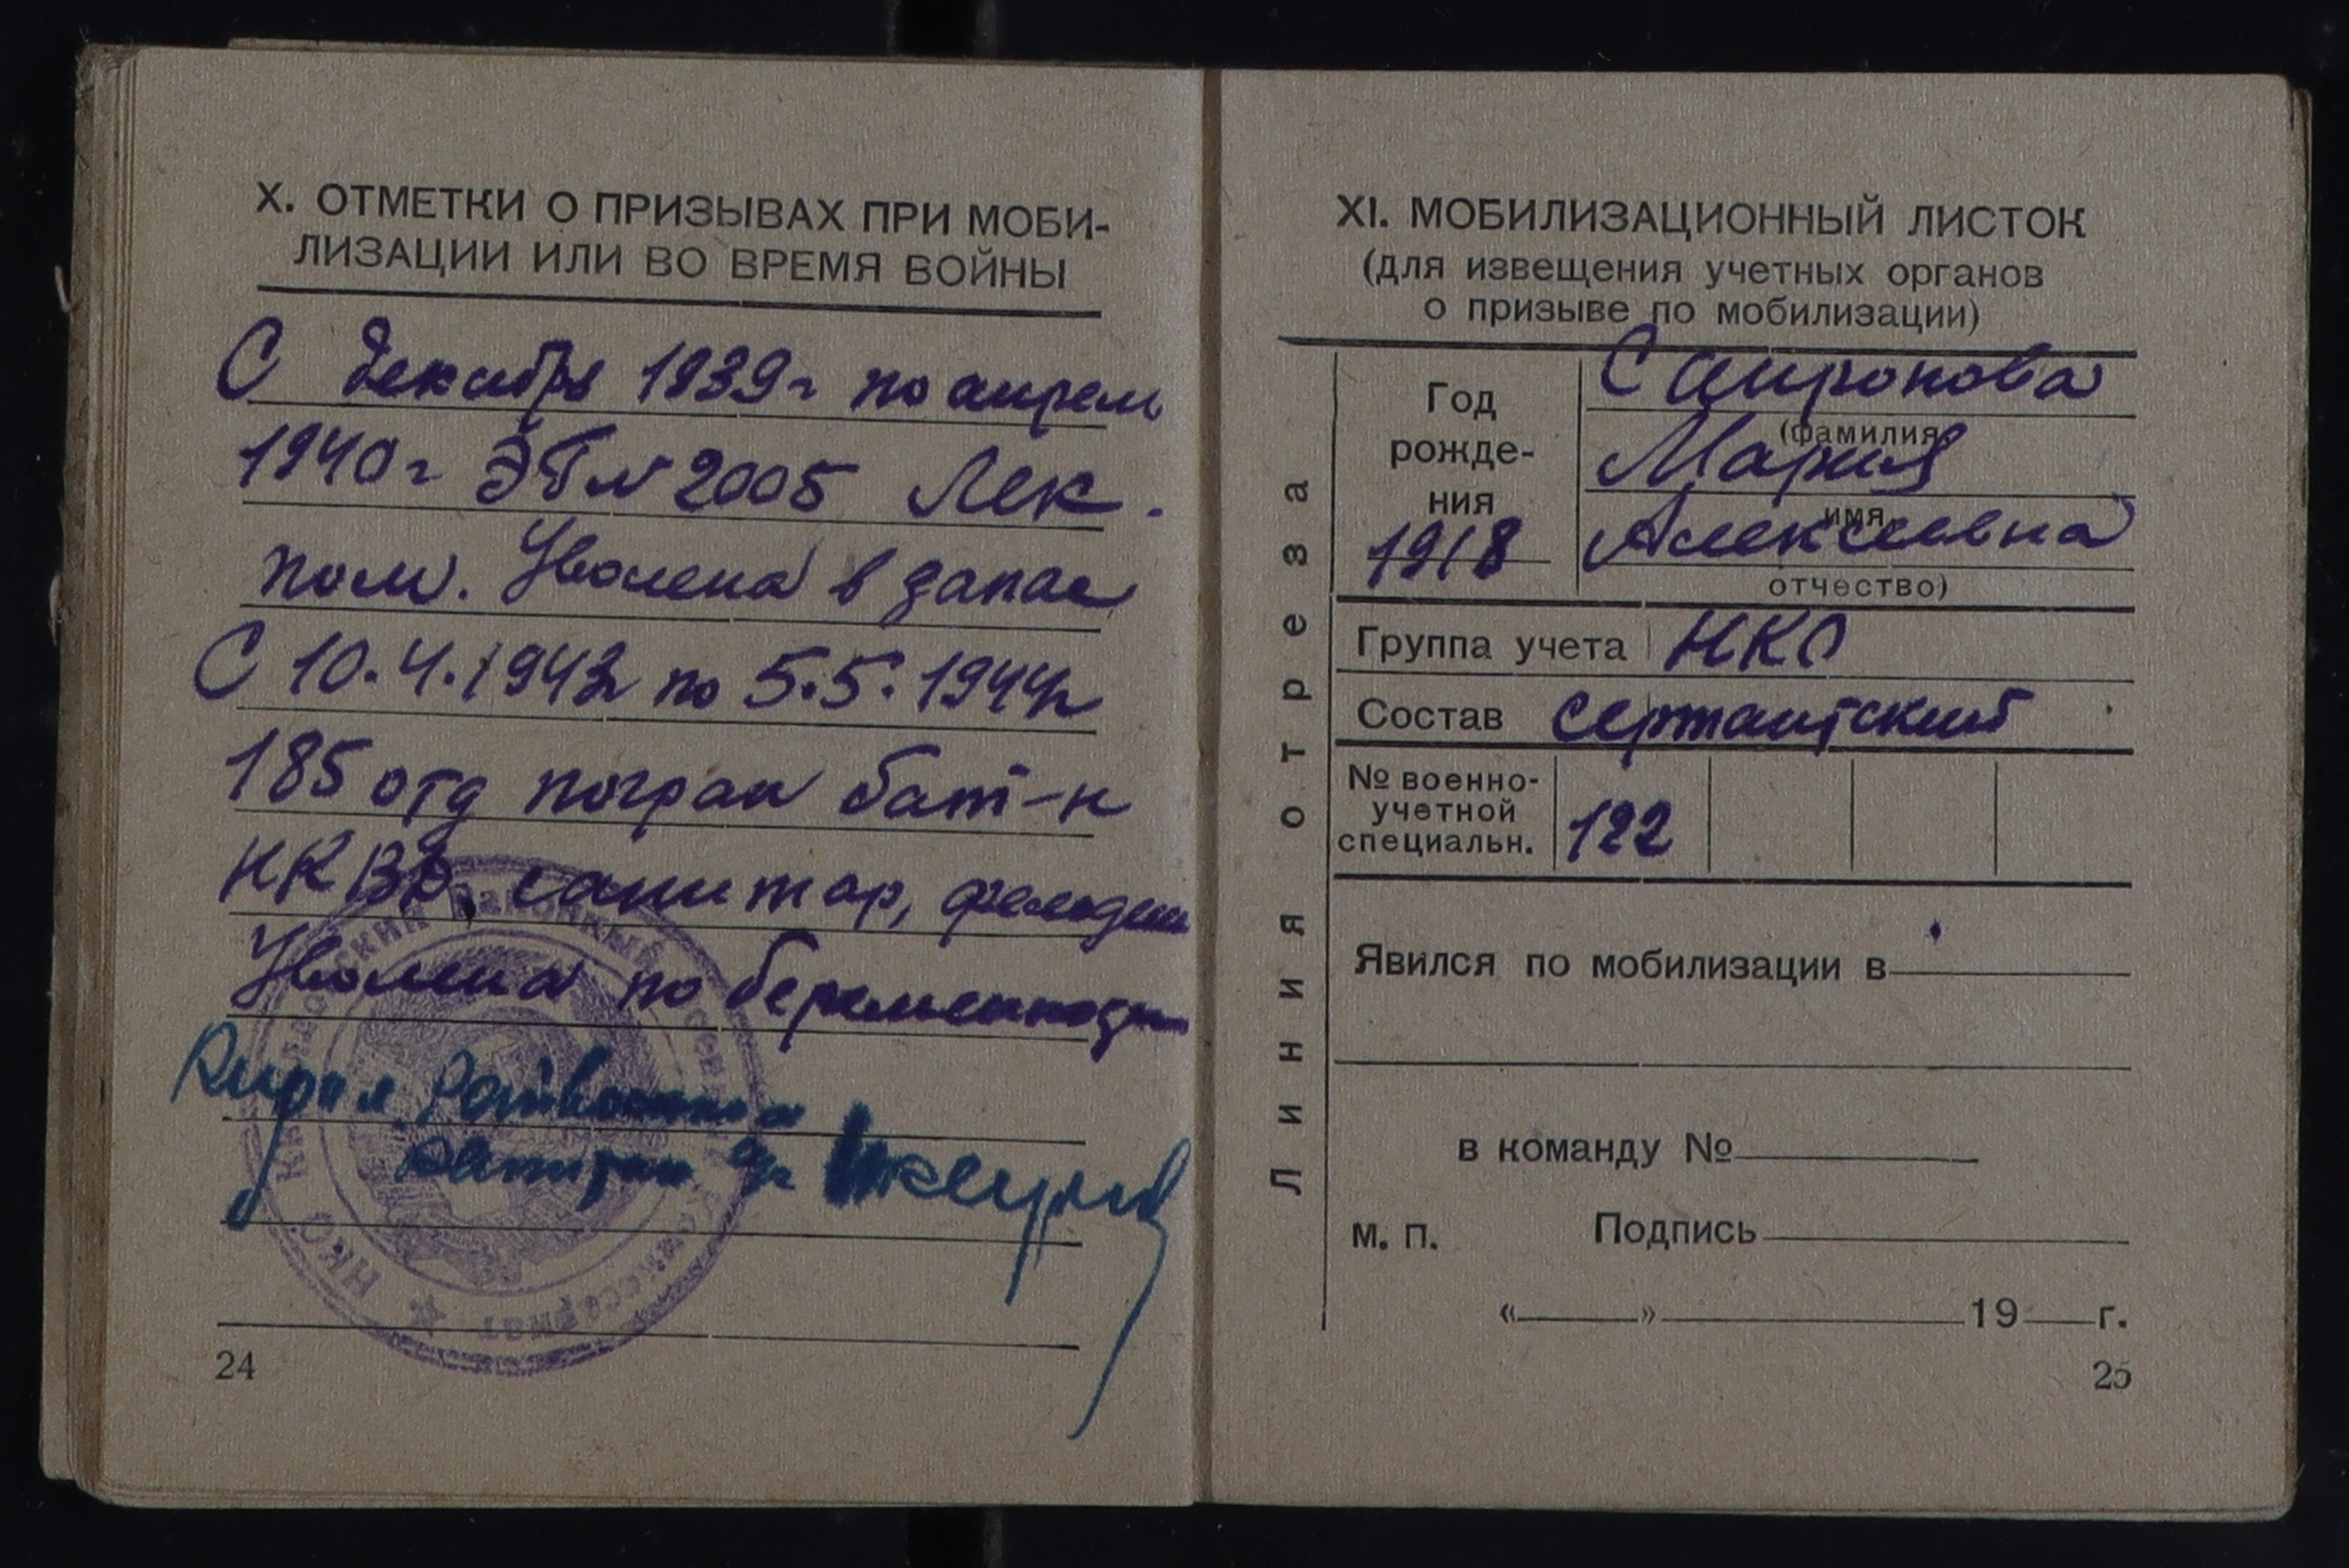 X. ОТМЕТКИ О ПРИЗЫВАХ ПРИ МОБИ-
ЛИЗАЦИИ ИЛИ ВО ВРЕМЯ ВОЙНЫ
С декабря 1939г по апрель
1940г ЭГ№ 2005 Лек.
пом. Уволена в запас
С 10.4.1942г по 5.5.1944г
185 отд погран бат-н
НКВД, санитар, фельдш
Уволена по беременности
капитан
НКО
Комиссариат
24
XI. МОБИЛИЗАЦИОННЫЙ ЛИСТОК
(для извещения учетных органов
о призыве по мобилизации)
Линия отреза
Год
рожде-
ния
1918
Сапронова
(фамилия,
Мария
имя,
Алексеевна
отчество)
Группа учета НКО
Состав сержантский
№ военно-
учетной
специальн.
122
Явился по мобилизации в
в команду №
М. П. Подпись
« » 19 г.
25